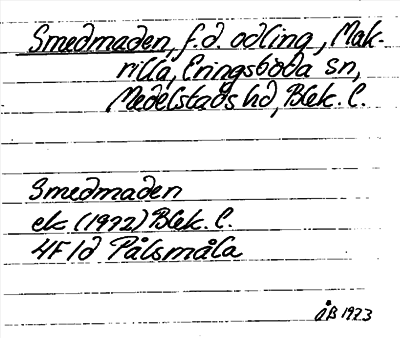 Smedmaden, f.d. odling, Mak-
rilla, Eringsboda sn,
Medelstads hd, Blek. l.
Smedmaden
ek (1972) Blek. l.
4F1d Pålsmåla
ÅB 1973